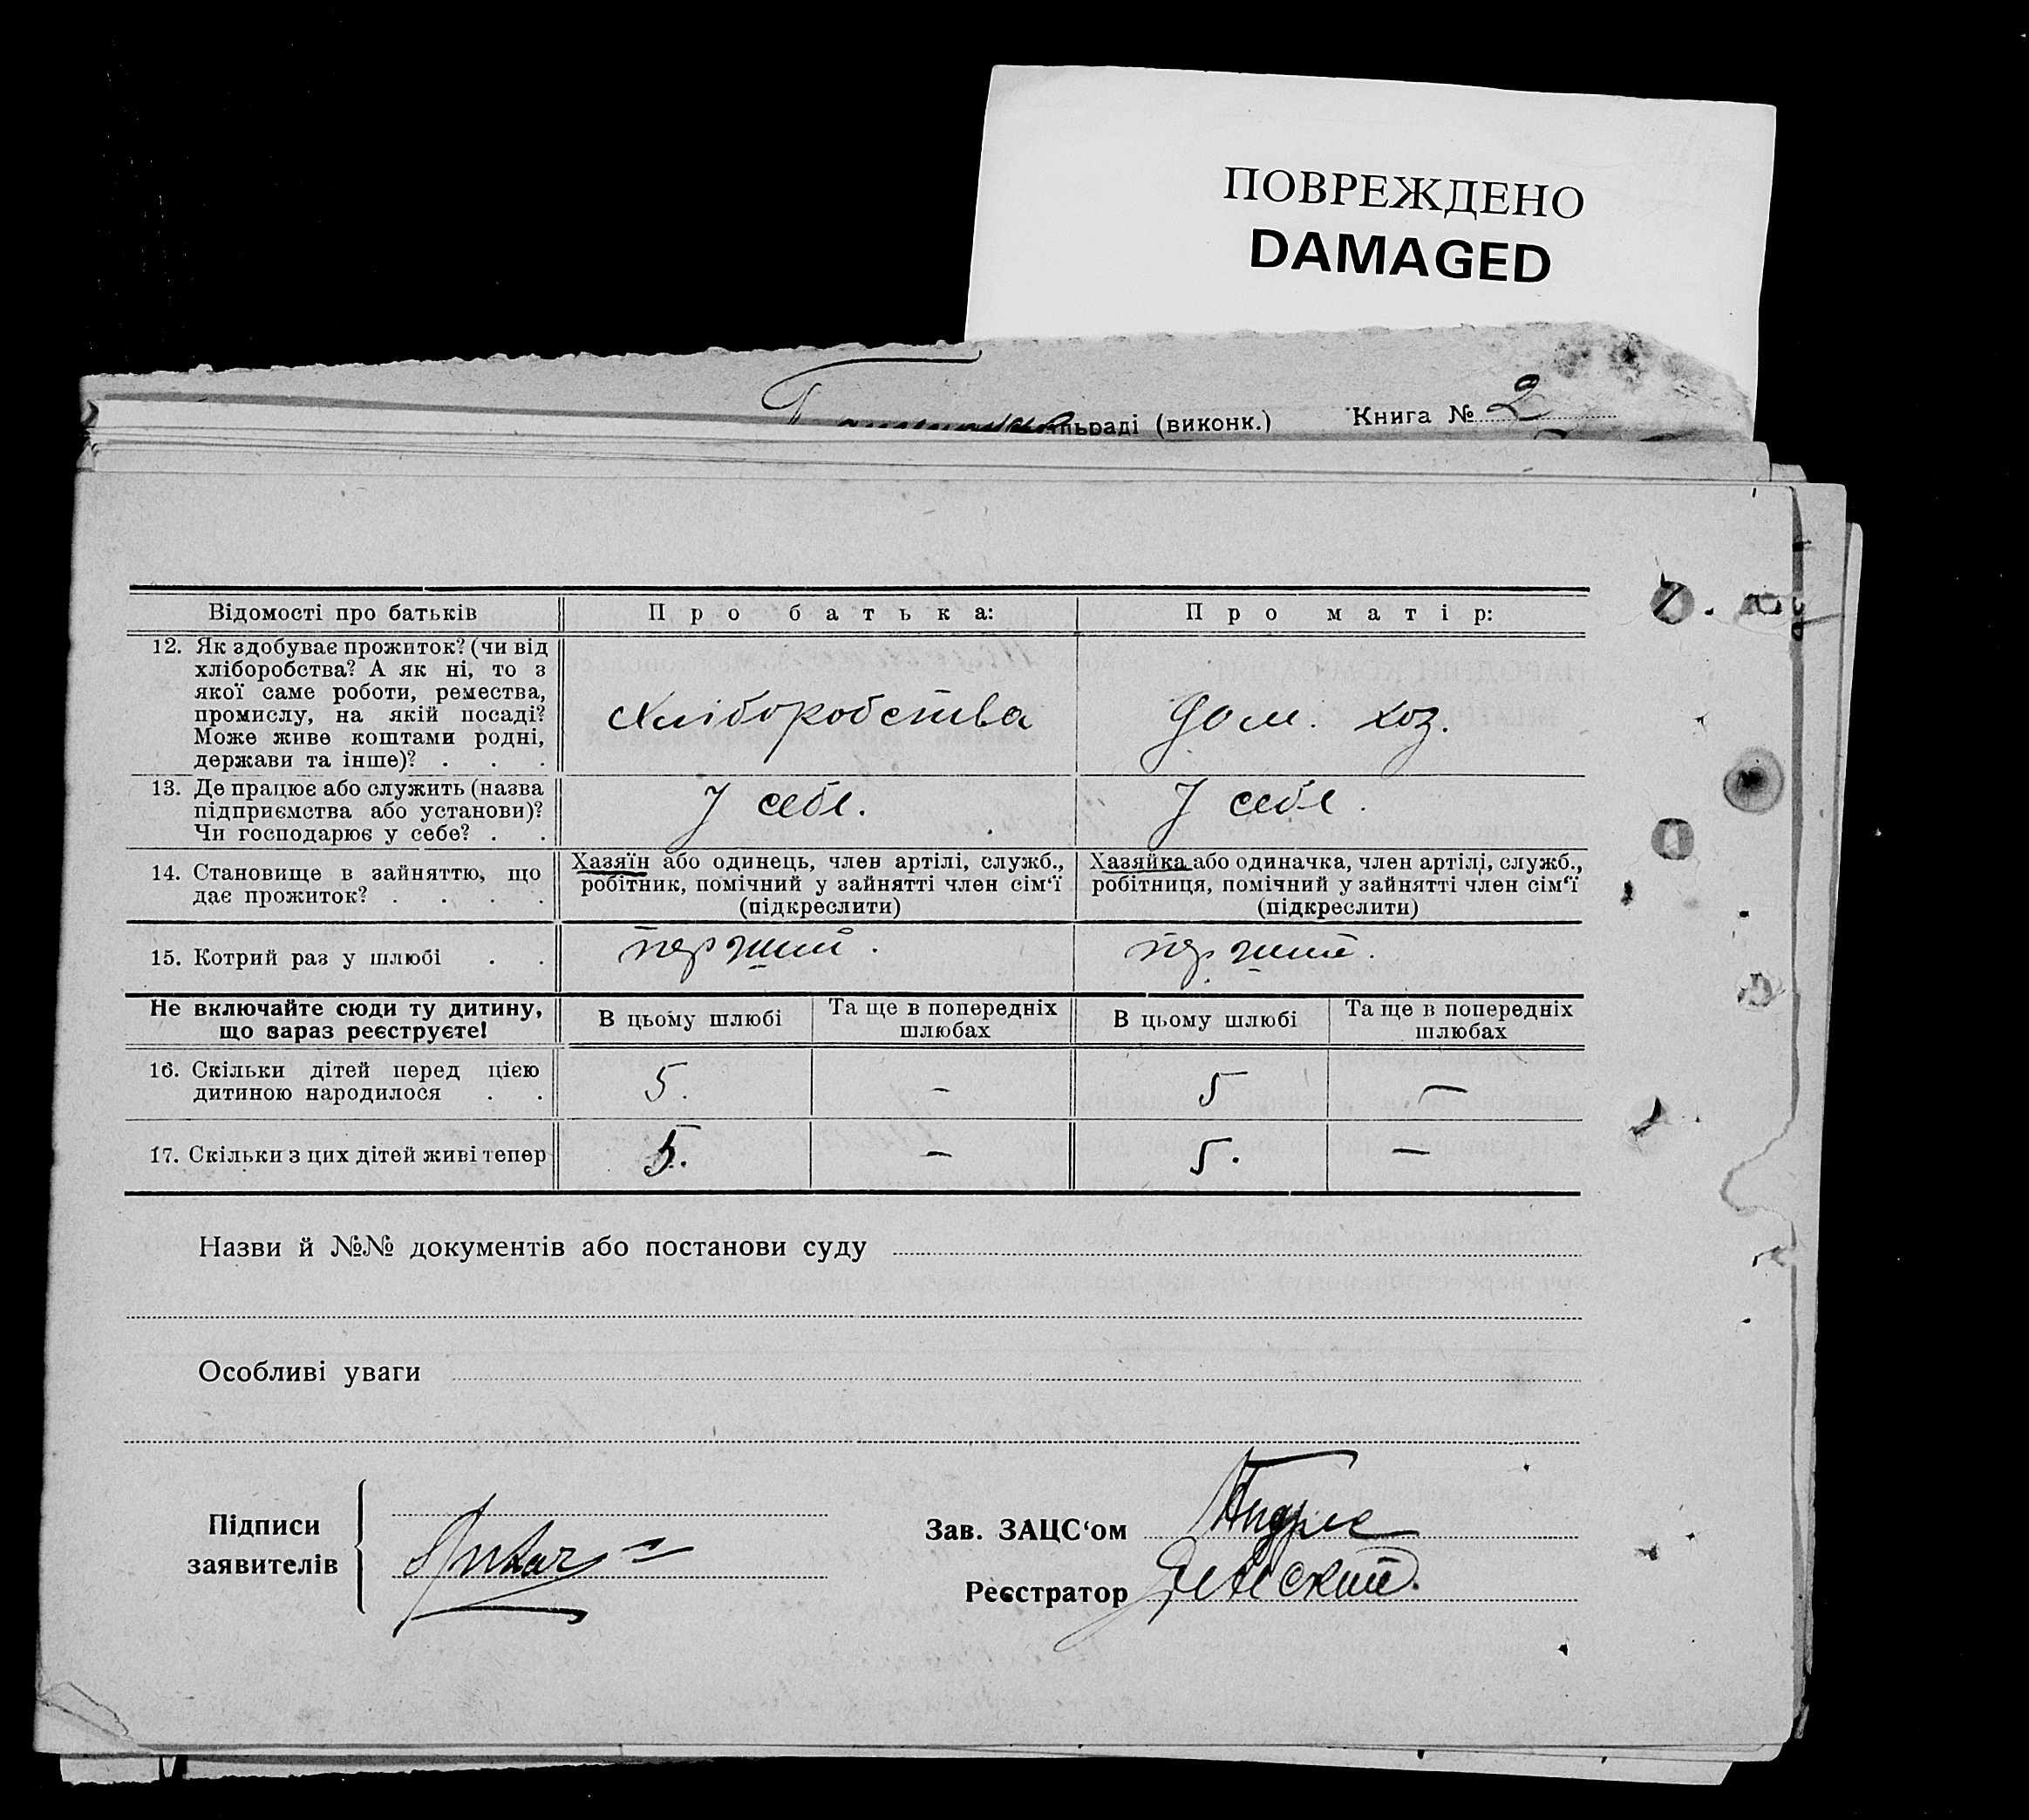 ПОВРЕЖДЕНО
DAMAGED
льраді (виконк.) Книга № 2
Відомості про батьків Про батька: Про матір:
12. Як здобуває прожиток? (чи від
хліборобства? А як ні, то з
якої саме роботи, ремества,
промислу, на якій посаді?
Може живе коштами родні,
держави та інше)? . . .
хліборобства дом. хоз.
13. Де працює або служить (назва
підприємства або установи)?
Чи господарює у себе? . .
У себе. У себе.
14. Становище в зайняттю, що
дає прожиток? . . . .
Хазяїн або одинець, член артілі, служб.,
робітник, помічний у зайнятті член сім‘ї
(підкреслити)
Хазяйка або одиначка, член артілі, служб.,
робітниця, помічний у зайнятті член сім‘ї
(підкреслити)
15. Котрий раз у шлюбі . . перший. перший.
Не включайте сюди ту дитину,
що зараз реєструєте!
В цьому шлюбі
Та ще в попередніх
шлюбах
В цьому шлюбі
Та ще в попередніх
шлюбах
16. Скільки дітей перед цією
дитиною народилося . .
5. – 5 –
17. Скільки з цих дітей живі тепер 5. – 5. –
Назви й №№ документів або постанови суду
Особливі уваги
Підписи
заявителів
Зав. ЗАЦС‘ом
Реєстратор